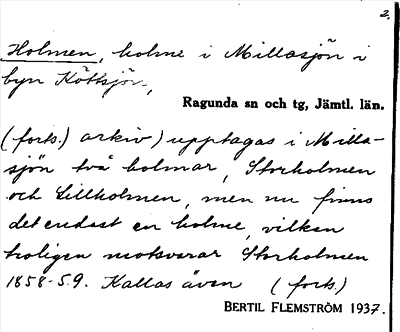 2.
Holmen, holme i Millasjön i
byn Köttsjön,
Ragunda sn och tg, Jämtl. län.
(forts.) arkiv) upptagas i Milla-
sjön två holmar, Storholmen
och Lillholmen, men nu finns
det endast en holme, vilken
troligen motsvarar Storholmen
1858-59. Kallas även (forts.)
BERTIL FLEMSTRÖM 1937.